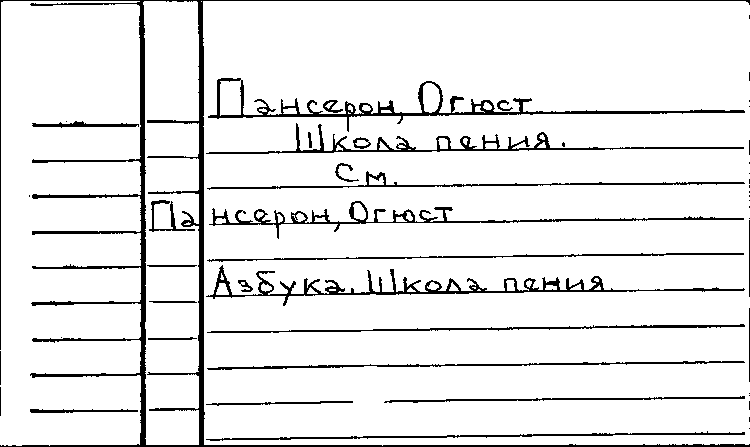 Пансерон, Огюст
Школа пения.
См.
Пансерон, Огюст
Азбука. Школа пения.